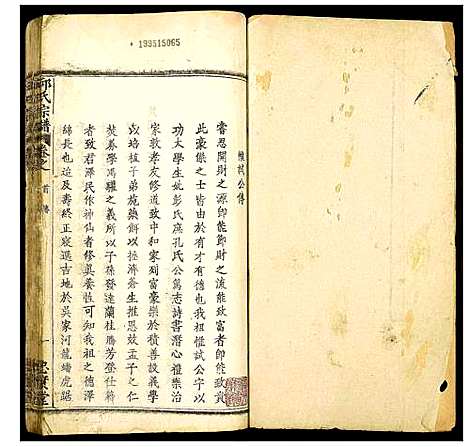 193515065
惟試公傳
睿思開財之源即能節財之流能致富者即能致貴
此豪傑之士皆由於有才有德也我祖惟試公字以
功太學生妣彭氏庶孔氏公篤志詩書潛心禮樂治
家敦孝友修道致中和家列富豪樂於積善設義學
以培植子弟施藥餌以拯濟蒼生推恩效孟子之仁
焚券學馮驩之義所以子孫發達蘭桂騰芳登仕籍
者致君澤民作神仙者修真養性可知我祖之德澤
綿長也迨及壽終正寢選吉地於吳家河龍蟠虎踞
邱氏宗譜 卷之 首 傳 一 忠實堂